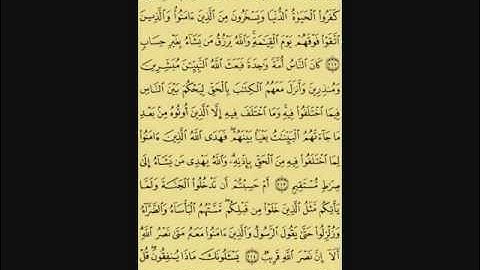 كَفَرُوا۟ ٱلْحَيَوٰةُ ٱلدُّنْيَا وَيَسْخَرُونَ مِنَ ٱلَّذِينَ ءَامَنُوا۟ ۘ وَٱلَّذِينَ
ٱتَّقَوْا۟ فَوْقَهُمْ يَوْمَ ٱلْقِيَٰمَةِ ۗ وَٱللَّهُ يَرْزُقُ مَن يَشَآءُ بِغَيْرِ حِسَابٍ
۝٢١٢ كَانَ ٱلنَّاسُ أُمَّةً وَٰحِدَةً فَبَعَثَ ٱللَّهُ ٱلنَّبِيِّـۧنَ مُبَشِّرِينَ
وَمُنذِرِينَ وَأَنزَلَ مَعَهُمُ ٱلْكِتَٰبَ بِٱلْحَقِّ لِيَحْكُمَ بَيْنَ ٱلنَّاسِ
فِيمَا ٱخْتَلَفُوا۟ فِيهِ ۚ وَمَا ٱخْتَلَفَ فِيهِ إِلَّا ٱلَّذِينَ أُوتُوهُ مِنۢ بَعْدِ
مَا جَآءَتْهُمُ ٱلْبَيِّنَٰتُ بَغْيًۢا بَيْنَهُمْ ۖ فَهَدَى ٱللَّهُ ٱلَّذِينَ ءَامَنُوا۟
لِمَا ٱخْتَلَفُوا۟ فِيهِ مِنَ ٱلْحَقِّ بِإِذْنِهِۦ ۗ وَٱللَّهُ يَهْدِى مَن يَشَآءُ إِلَىٰ
صِرَٰطٍ مُّسْتَقِيمٍ ۝٢١٣ أَمْ حَسِبْتُمْ أَن تَدْخُلُوا۟ ٱلْجَنَّةَ وَلَمَّا
يَأْتِكُم مَّثَلُ ٱلَّذِينَ خَلَوْا۟ مِن قَبْلِكُم ۖ مَّسَّتْهُمُ ٱلْبَأْسَآءُ وَٱلضَّرَّآءُ
وَزُلْزِلُوا۟ حَتَّىٰ يَقُولَ ٱلرَّسُولُ وَٱلَّذِينَ ءَامَنُوا۟ مَعَهُۥ مَتَىٰ نَصْرُ ٱللَّهِ ۗ
أَلَآ إِنَّ نَصْرَ ٱللَّهِ قَرِيبٌ ۝٢١٤ يَسْـَٔلُونَكَ مَاذَا يُنفِقُونَ ۖ قُلْ